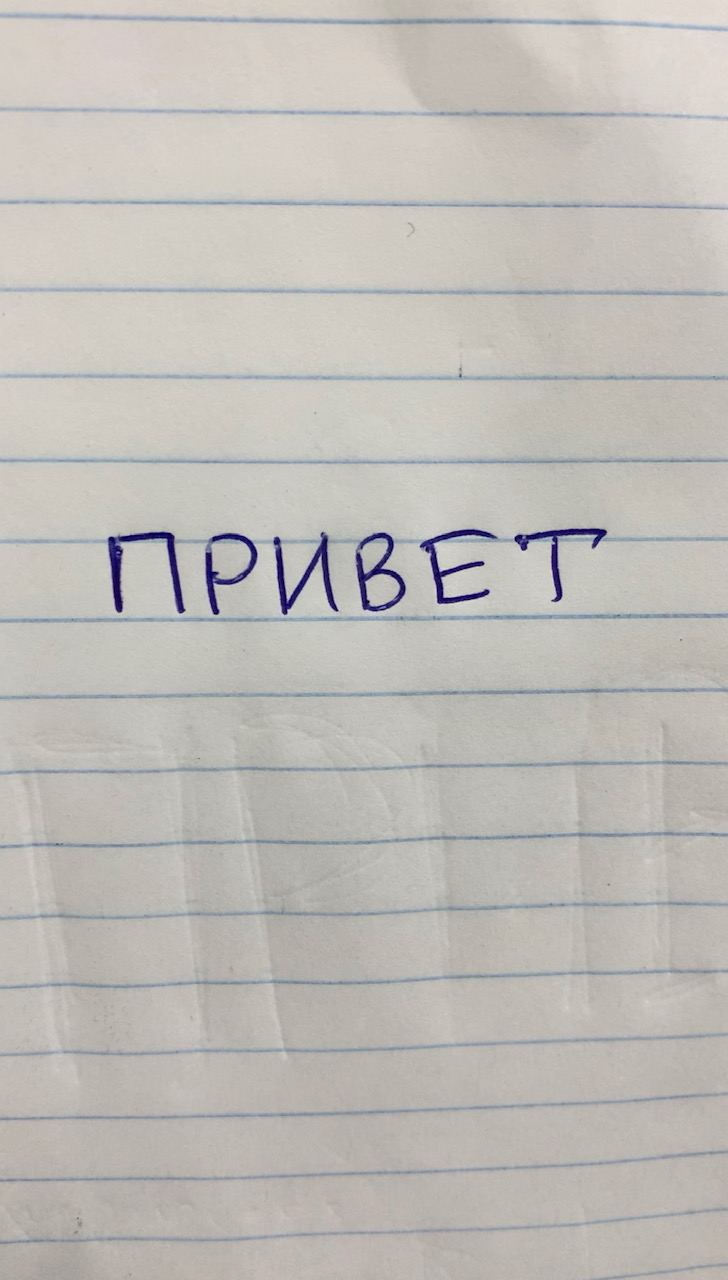 ПРИВЕТ